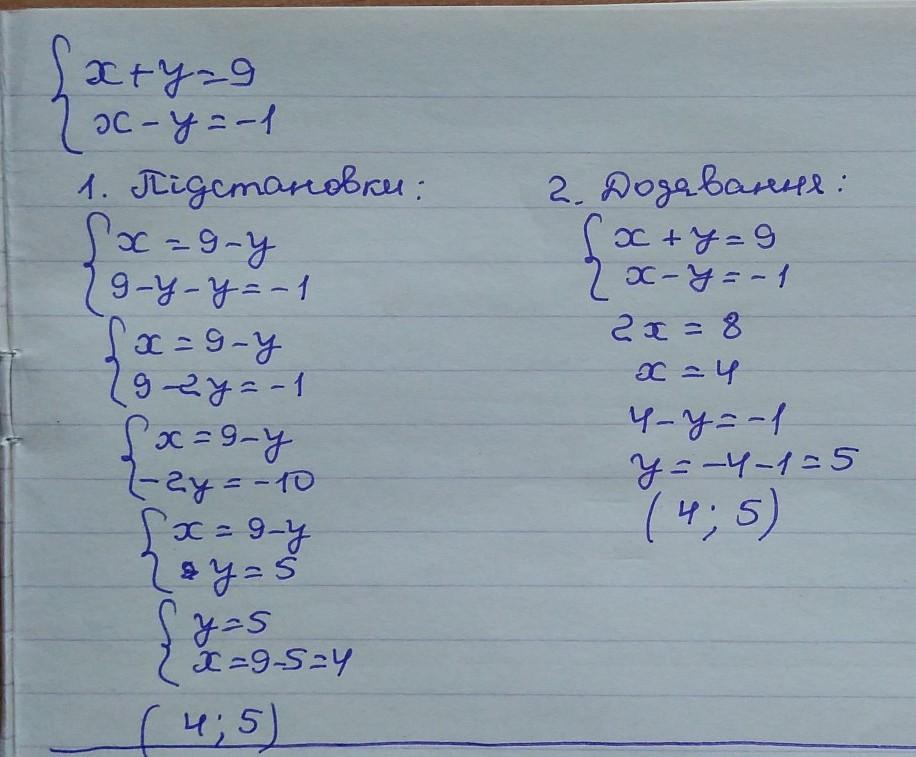 x+y=9
x-y=-1
1. Підстановки:
x=9-y
9-y-y=-1
x=9-y
9-2y=-1
x=9-y
-2y=-10
x=9-y
y=5
y=5
x=9-5=4
(4; 5)
2. Додавання:
x+y=9
x-y=-1
2x=8
x=4
4-y=-1
y=-4-1=5
(4; 5)